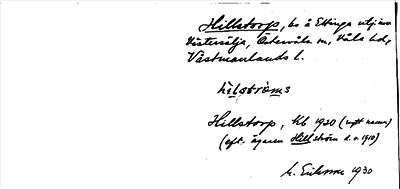 Hillstorp, hs å Ettinga utjord
Västersälja, Östervåla sn, Våla hd,
Västmanlands l.
hìlstròms
Hillstorp, kb 1920 (nytt namn)
(eft. ägaren Hillström d. o. 1910)
M. Eriksson 1930